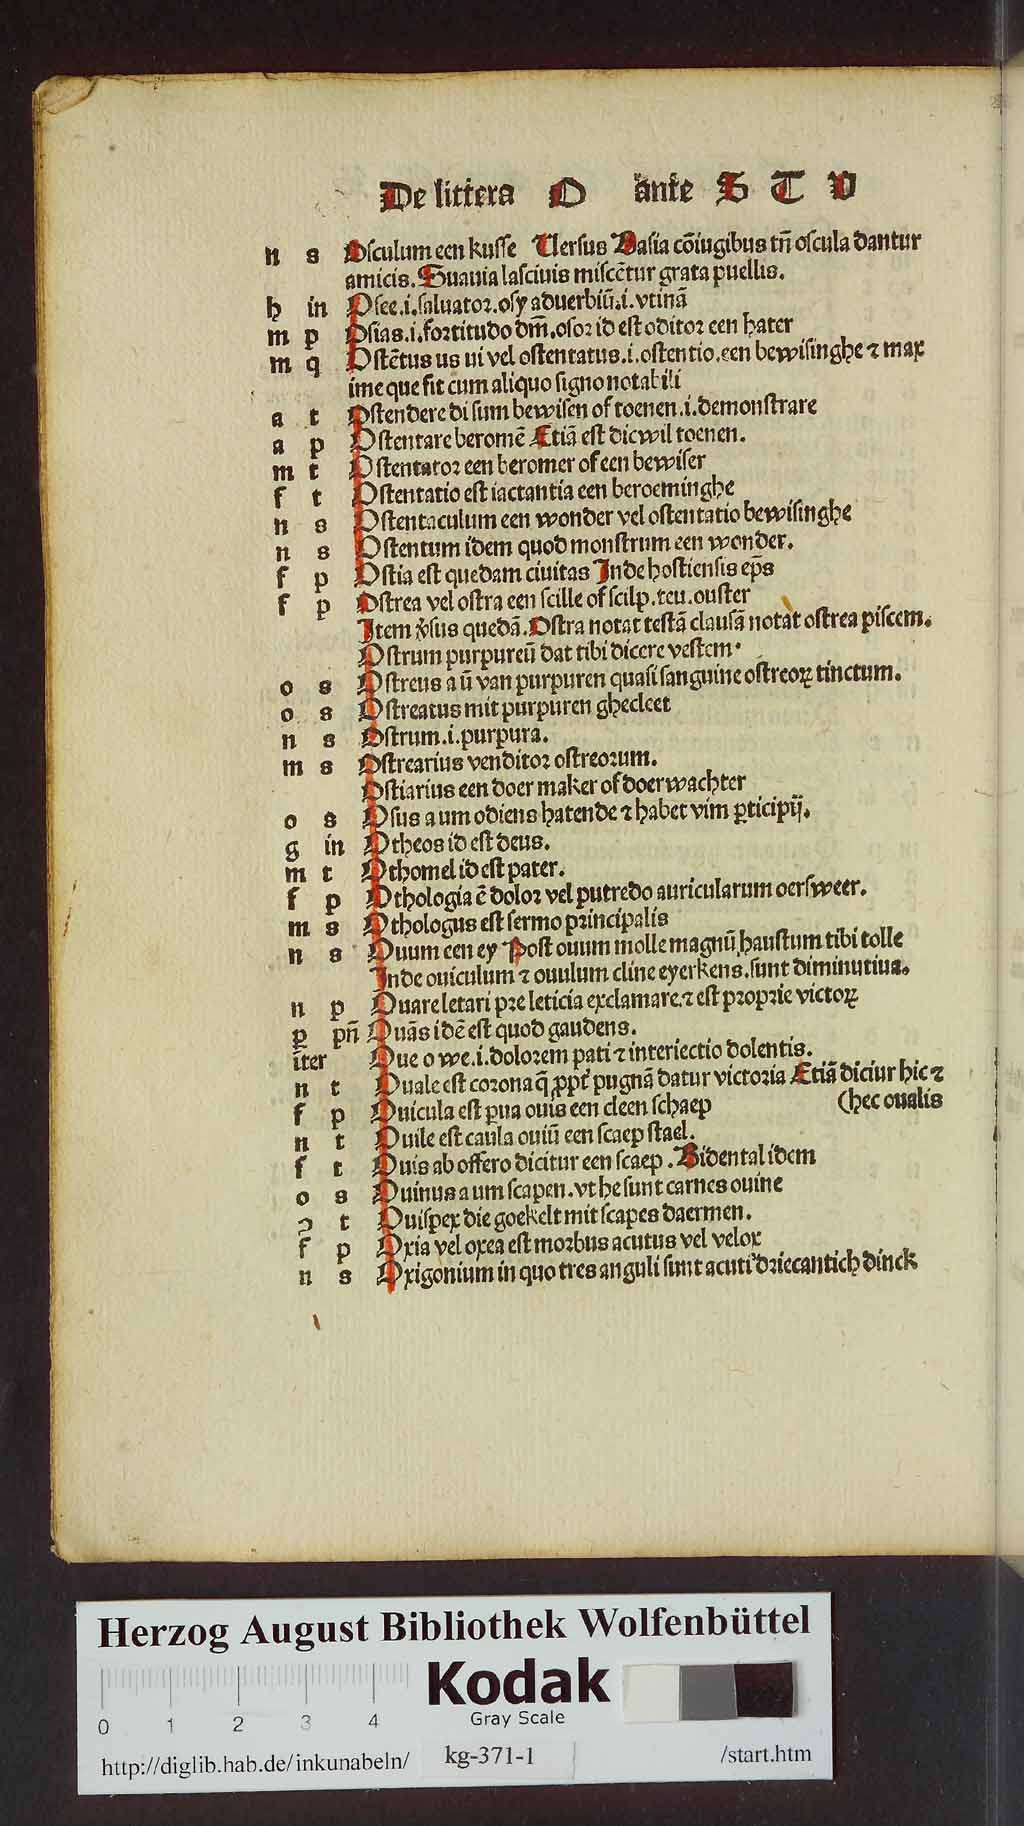 De littera O ante S T V
n s Osculum een kusse Versus Basia cōiugibus tn̄ oscula dantur
amicis. Suauia lasciuis miscētur grata puellis.
h in Osee .i. saluator. osy aduerbiū .i. vtinā
m p Osias .i. fortitudo dm̄. osor id est oditor een hater
m q Ostētus us ui vel ostentatus .i. ostentio. een bewisinghe ⁊ max
ime que fit cum aliquo signo notabili
a t Ostendere di sum bewisen of toenen .i. demonstrare
a p Ostentare beromē Etiā est dicwil toenen.
m t Ostentator een beromer of een bewiser
f t Ostentatio est iactantia een beroeminghe
n s Ostentaculum een wonder vel ostentatio bewisinghe
n s Ostentum idem quod monstrum een wonder.
f p Ostia est quedam ciuitas Inde hostiensis ep̄s
f p Ostrea vel ostra een scille of scilp. teu. ouster
Item v̄sus quedā. Ostra notat testā clausā notat ostrea piscem.
Ostrum purpureū dat tibi dicere vestem.
o s Ostreus a ū van purpuren quasi sanguine ostreoꝝ tinctum.
o s Ostreatus mit purpuren ghecleet
n s Ostrum .i. purpura.
m s Ostrearius venditor ostreorum.
Ostiarius een doer maker of doerwachter
o s Osus a um odiens hatende ⁊ habet vim ꝑticipij.
g in Otheos id est deus.
m t Othomel id est pater.
f p Othologia ē dolor vel putredo auricularum oersweer.
m s Othologus est sermo principalis
n s Ouum een ey Post ouum molle magnū haustum tibi tolle
Inde ouiculum ⁊ ouulum cline eyerkens. sunt diminutiua.
n p Ouare letari pre leticia exclamare. ⁊ est proprie victoꝝ
ꝑ pn̄ Ouās idē est quod gaudens.
īter Oue o we .i. dolorem pati ⁊ interiectio dolentis.
n t Ouale est corona q̄ ꝓpt' pugnā datur victoria Etiā diciur hic ⁊
f p Ouicula est ꝑua ouis een cleen schaep (hec oualis
n t Ouile est caula ouiū een scaep stael.
f t Ouis ab offero dicitur een scaep. Bidental idem
o s Ouinus a um scapen. vt he sunt carnes ouine
ɔ t Ouispex die goekelt mit scapes daermen.
f p Oxia vel oxea est morbus acutus vel velox
n s Oxigonium in quo tres anguli sunt acuti driecantich dinck
Herzog August Bibliothek Wolfenbüttel
Kodak
Gray Scale
0 1 2 3 4
http://diglib.hab.de/inkunabeln/ kg-371-1 /start.htm